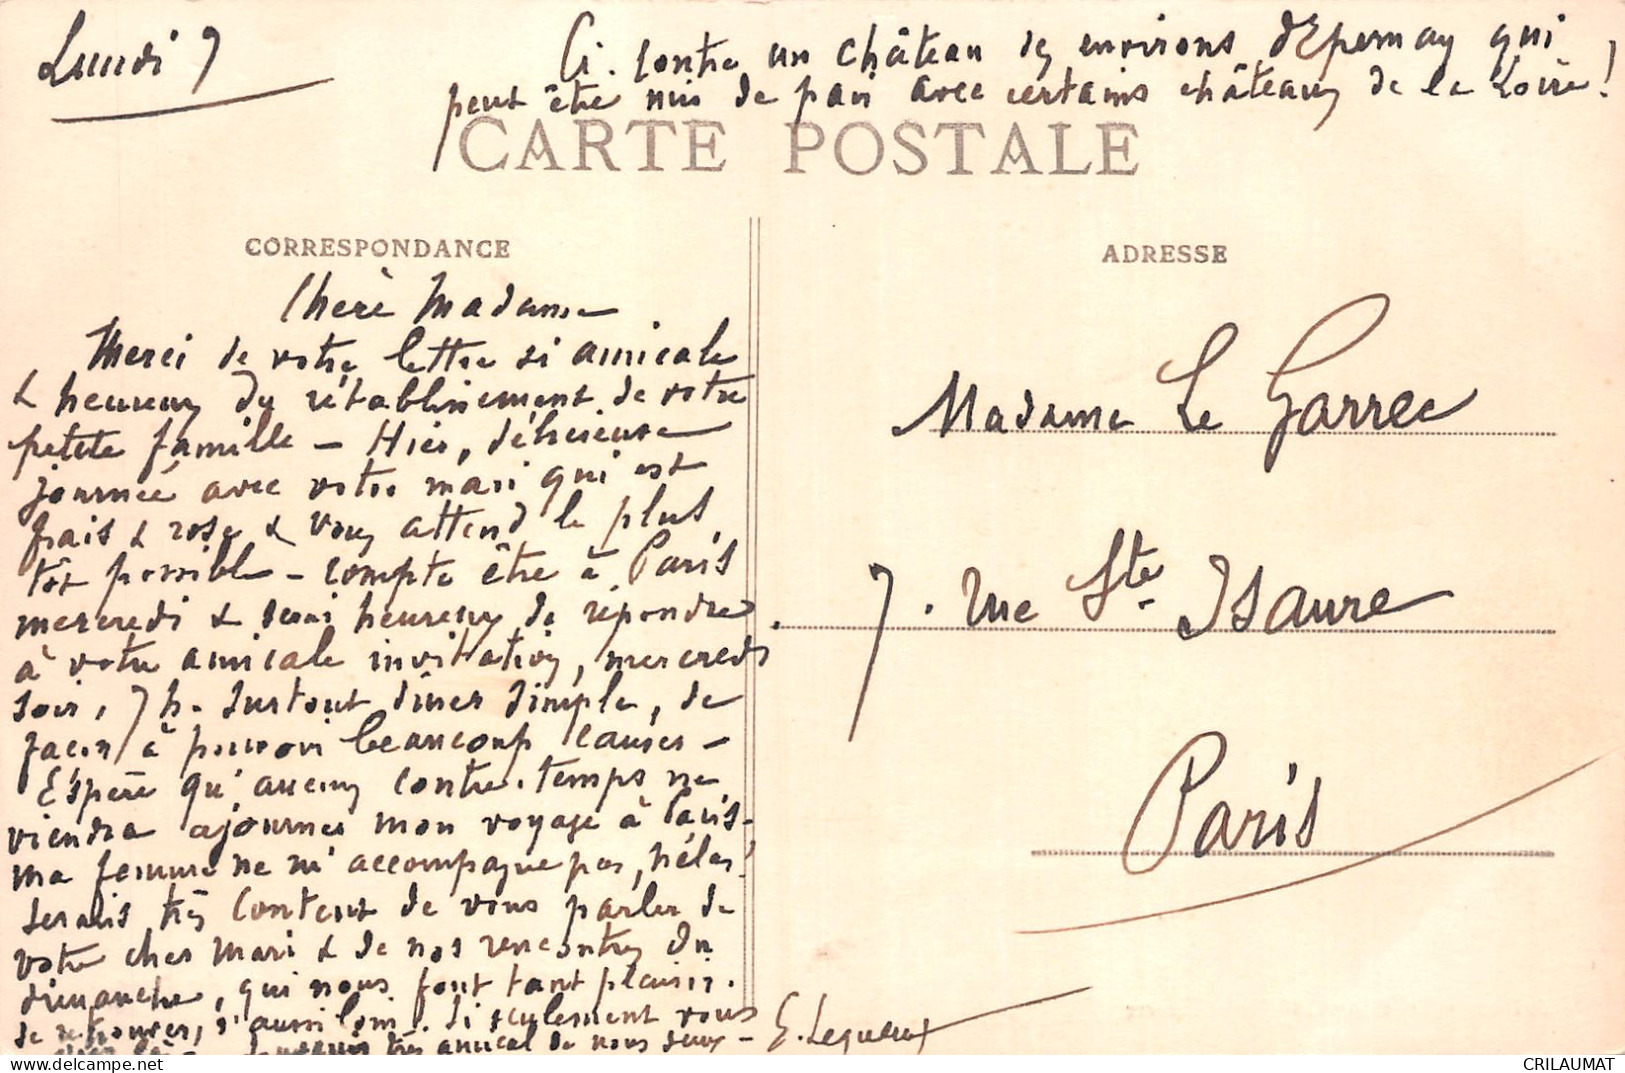 Lundi 9
Ci-contre un château des environs d'Epernay qui
peut être mis de pair avec certains châteaux de la Loire!
CARTE POSTALE
CORRESPONDANCE
ADRESSE
Chère Madame
Merci de votre lettre si amicale
& heureux du rétablissement de votre
petite famille - Hier, délicieuse
journée avec votre mari qui est
frais & rose & vous attend le plus
tôt possible - compte être à Paris
mercredi & serai heureux de répondre
à votre amicale invitation, mercredi
soir, 7 h. Surtout dîner simple, de
façon à pouvoir beaucoup causer -
Espère qu'aucun contre-temps ne
viendra ajourner mon voyage à Paris -
ma femme ne m'accompagne pas, hélas!
Serais très content de vous parler de
votre cher Mari & de nos rencontres du
dimanche, qui nous font tant plaisir.
de retrouver, si loin. Si seulement vous
Souvenir très amical de nous deux - E. Lequeux
Madame Le Garrec
7. rue Ste Isaure
Paris
CRILAUMAT